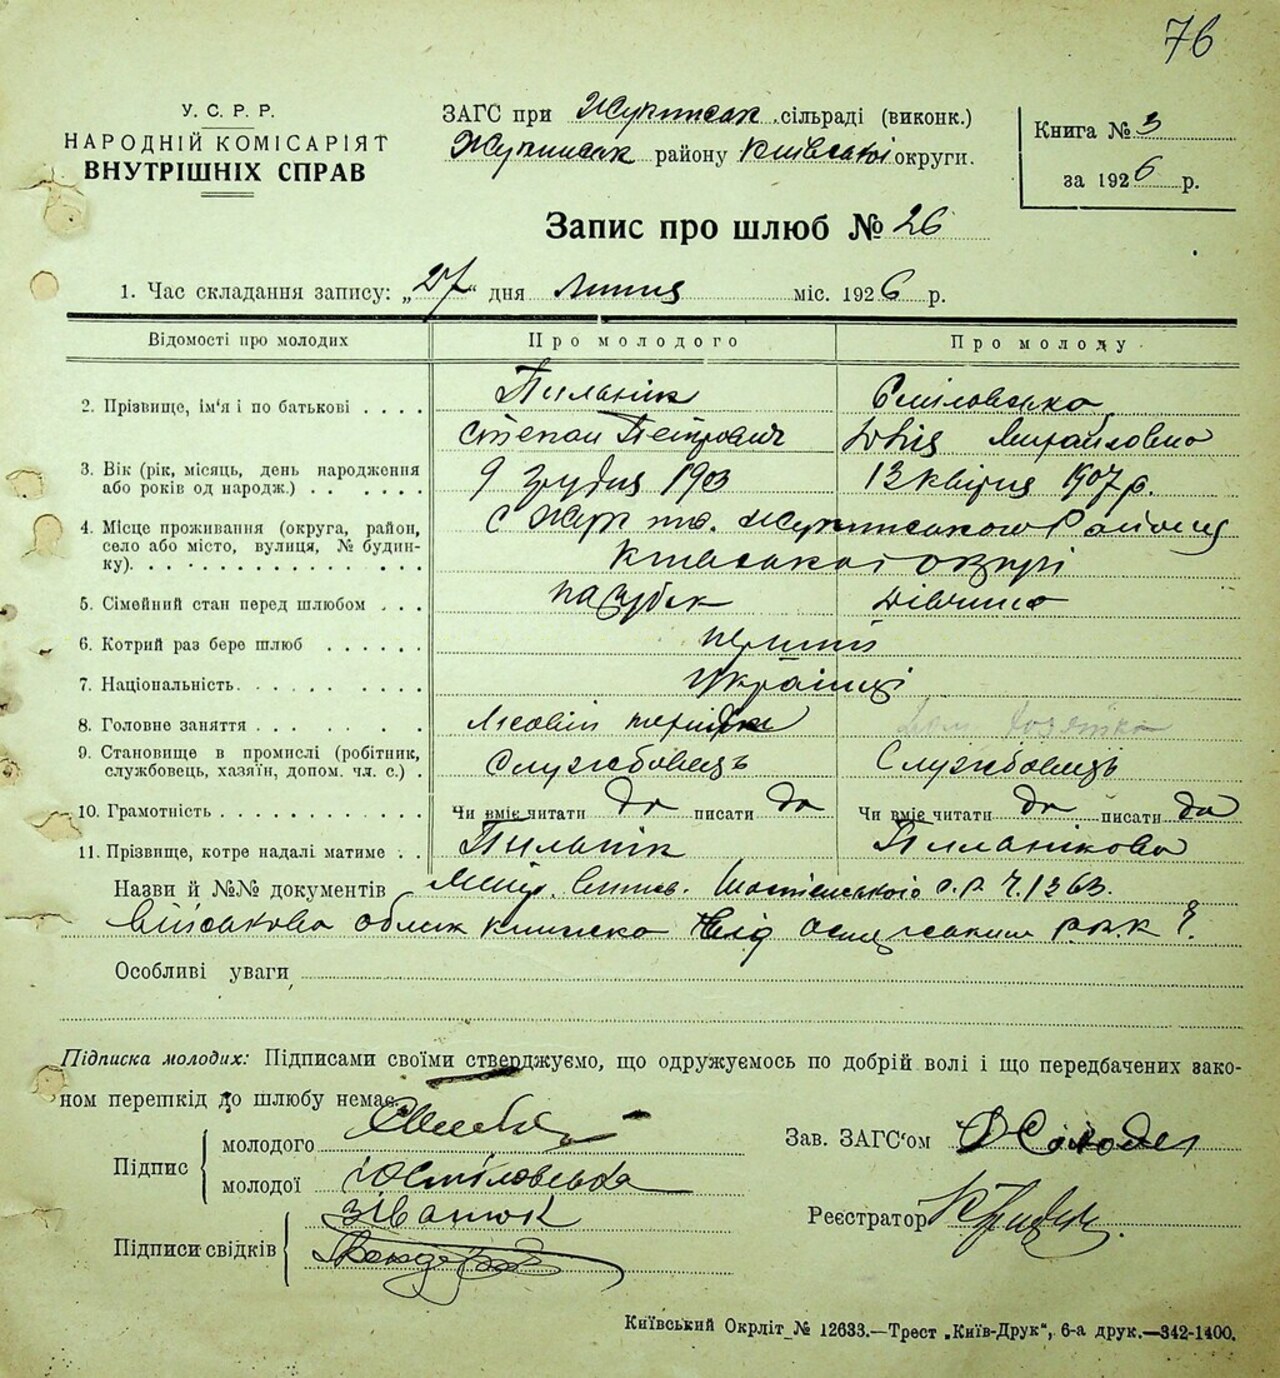 76
У. С. Р. Р.
НАРОДНІЙ КОМІСАРІЯТ
ВНУТРІШНІХ СПРАВ
ЗАГС при сільраді (виконк.)
району Київської округи.
Книга № 3
за 1926 р.
Запис про шлюб № 26
1. Час складання запису: „27“ дня липня міс. 1926 р.
Відомості про молодих Про молодого Про молоду
2. Прізвище, ім‘я і по батькові . . . . Пильнік Сміловська
Степан Петрович Юлія Михайловна
3. Вік (рік, місяць, день народження
або років од народж.) . . . . . . 9 Грудня 1903 13 квітня 1907 р.
4. Місце проживання (округа, район,
село або місто, вулиця, № будин-
ку). . . . . . . . . . . . . . .
округи
5. Сімейний стан перед шлюбом . . . парубок дівчина
6. Котрий раз бере шлюб . . . . . . перший
7. Національність. . . . . . . . . . українці
8. Головне заняття . . . . . . . . Лісовий
9. Становище в промислі (робітник,
службовець, хазяїн, допом. чл. с.) . Службовець Службовець
10. Грамотність . . . . . . . . . . . . Чи вміє читати да писати да Чи вміє читати да писати да
11. Прізвище, котре надалі матиме . . Пильнік Пильнікова
Назви й №№ документів с. р. Ч. 1363.
Військова облік книжка від р.в.к
Особливі уваги
Підписка молодих: Підписами своїми стверджуємо, що одружуємось по добрій волі і що передбачених зако-
ном перешкід до шлюбу немає.
Підпис
молодого
молодої ЮСміловська
Підписи свідків
Зав. ЗАГС‘ом
Реєстратор
Київський Окрліт № 12633.—Трест „Київ-Друк“, 6-а друк.—342-1400.